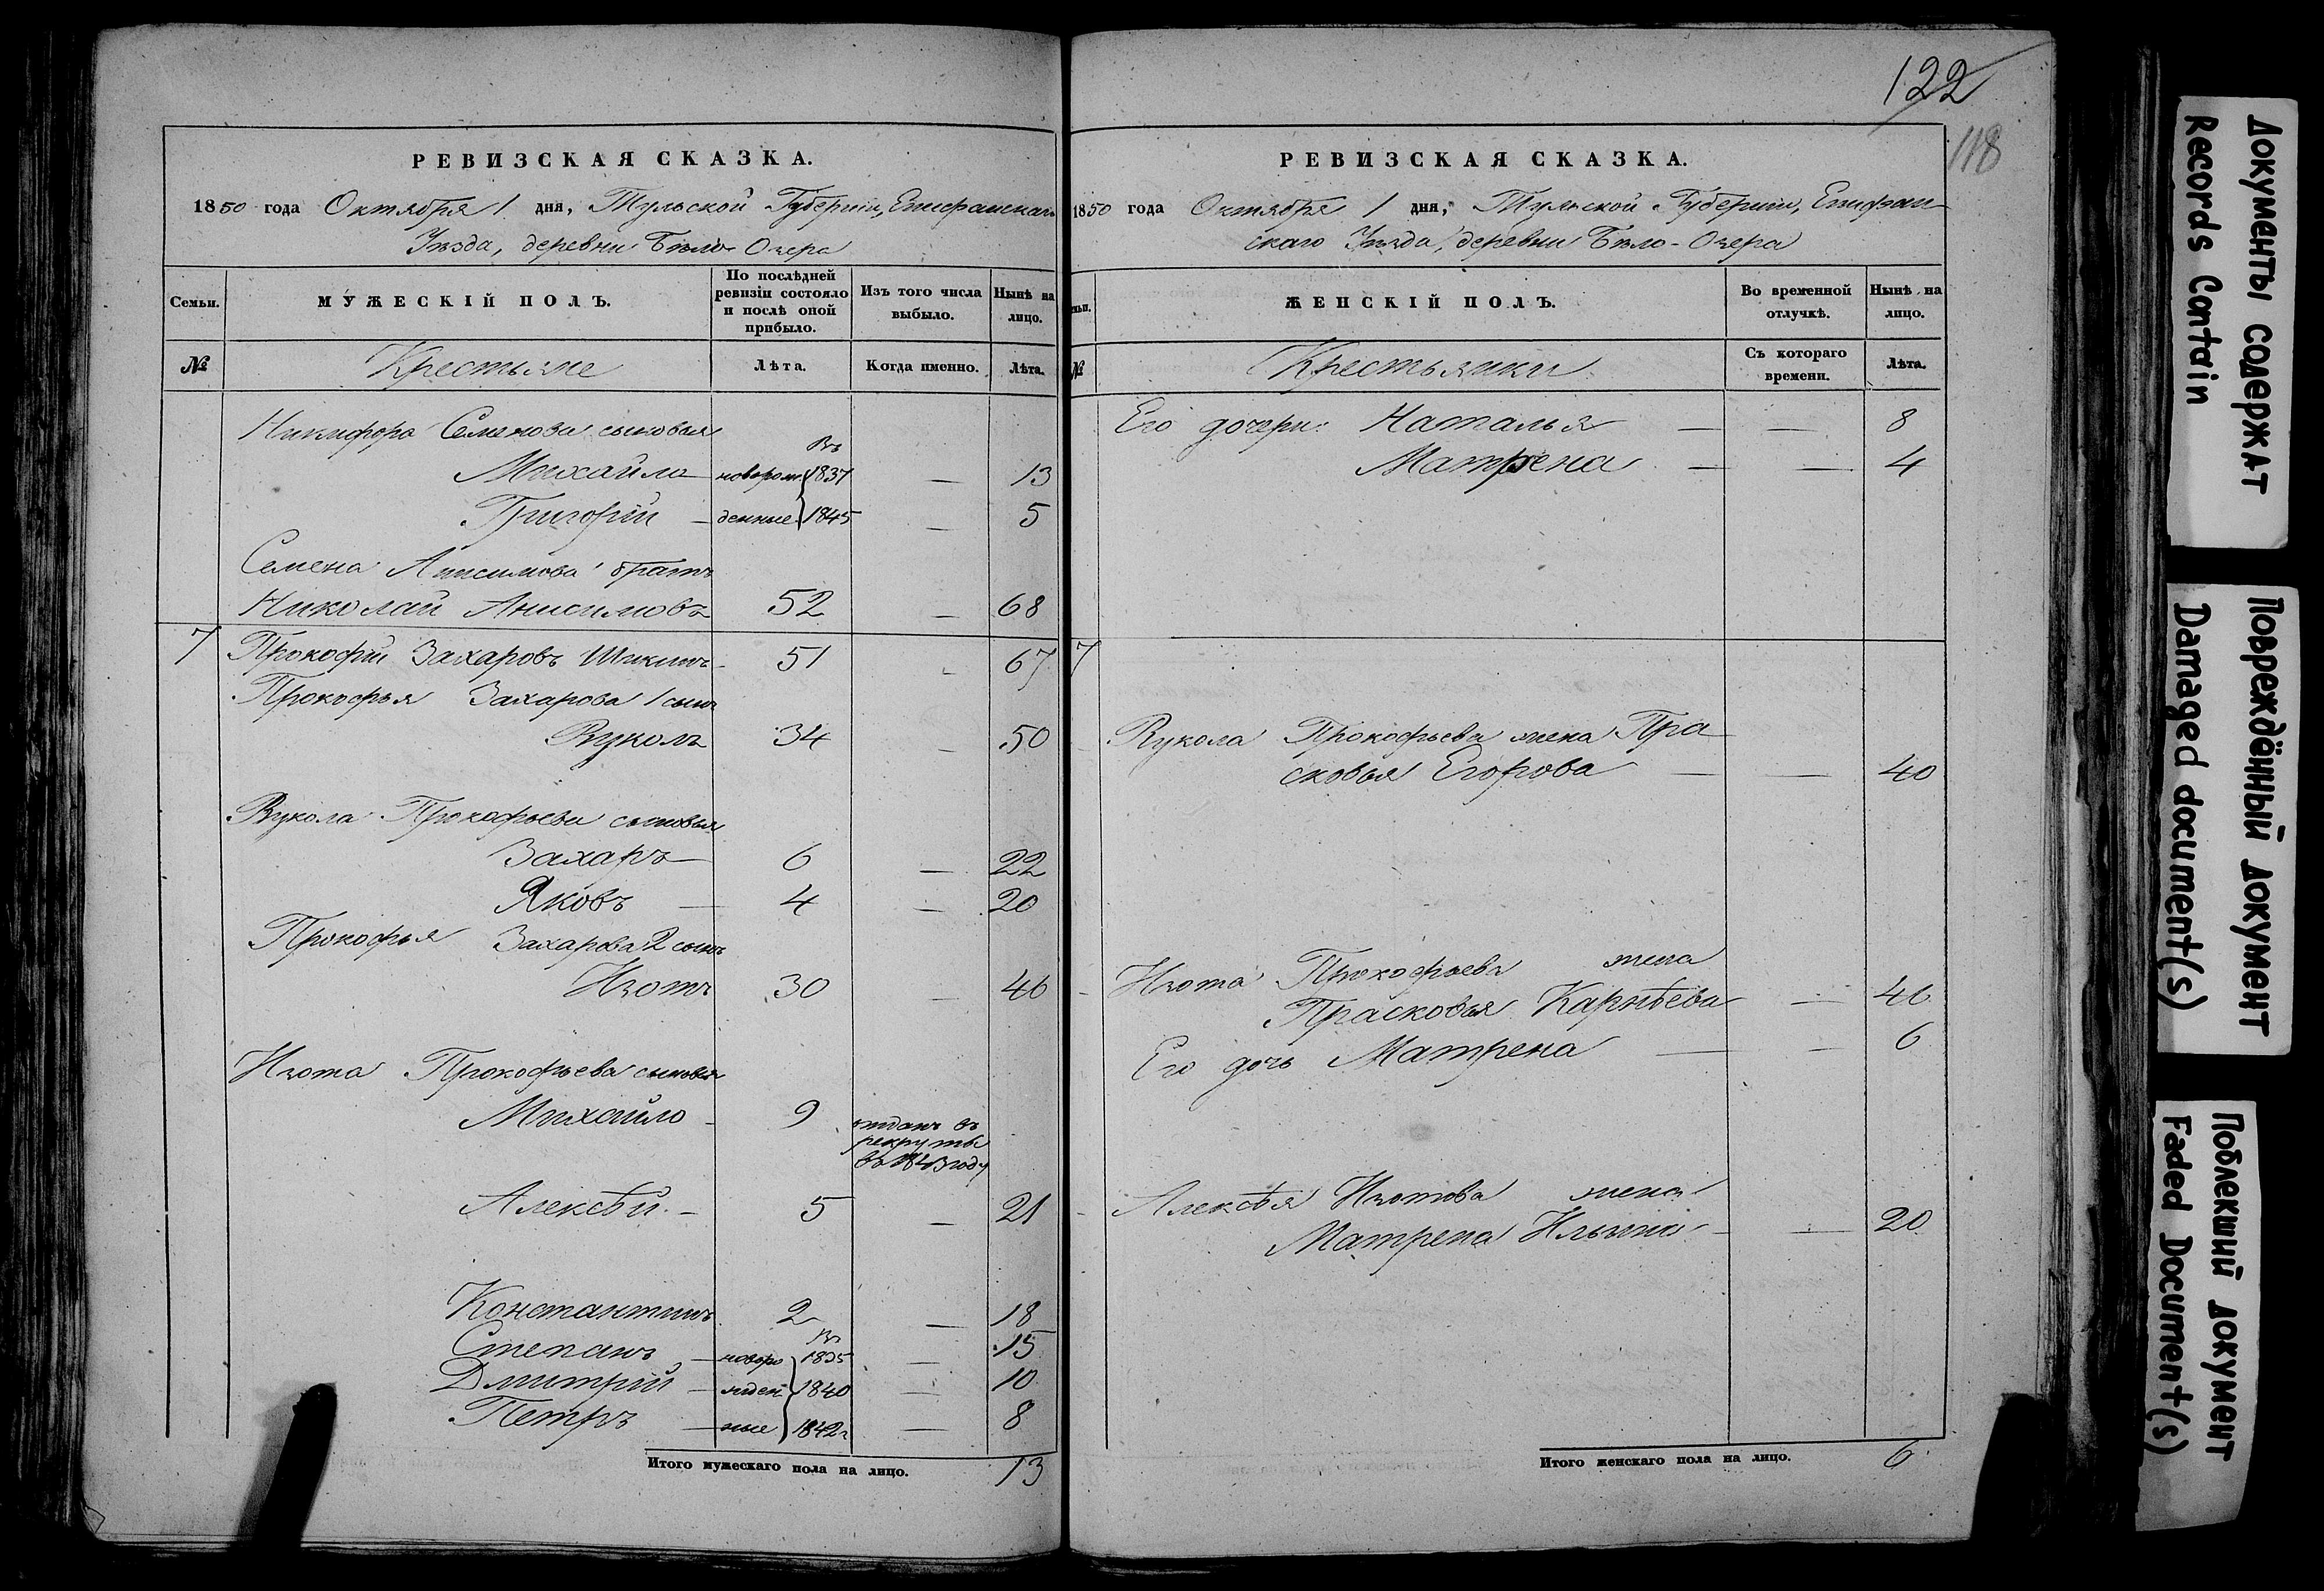 122
118
РЕВИЗСКАЯ СКАЗКА.
1850 года Октября 1 дня, Тульской Губернiи, Епифанскаго
Уѣзда, деревни Бѣло-Озера
Семьи.
МУЖЕСКIЙ ПОЛЪ.
По послѣдней ревизiи состояло и послѣ оной прибыло.
Изъ того числа выбыло.
Нынѣ на лицо.
№
Крестьяне
Лѣта.
Когда именно.
Лѣта.
Никифора Семенова сыновья
Въ
Михайла новорож 1837 — 13
Григорiй — денные 1845 — 5
Семена Анисимова братъ
Николай Анисимовъ 52 — 68
7 Прокофiй Захаровъ Шикинъ 51 — 67
Прокофья Захарова 1 сынъ
Вуколъ 34 — 50
Вукола Прокофьева сыновья
Захаръ 6 — 22
Яковъ — 4 — 20
Прокофья Захарова 2 сынъ
Изотъ 30 — 46
Изота Прокофьева сыновья
Михайло 9 отданъ въ
рекруты
въ 1843 году
Алексѣй — 5 — 21
Константинъ 2 — 18
Въ
Степанъ — новоро 1835 — 15
Дмитрiй — жден 1840 — 10
Петръ — ные 1842 — 8
Итого мужескаго пола на лицо. 13
РЕВИЗСКАЯ СКАЗКА.
1850 года Октября 1 дня, Тульской Губернiи, Епифан
скаго Уѣзда, деревни Бѣло-Озера
ЖЕНСКIЙ ПОЛЪ.
Во временной отлучкѣ.
Нынѣ на лицо.
№
Крестьянки
Съ котораго времени.
Лѣта.
Его дочери: Наталья — — 8
Матрена — — 4
7
Вукола Прокофьева жена Пра
сковья Егорова — — 40
Изота Прокофьева жена
Прасковья Карнѣева — 46
Его дочь Матрена — — 6
Алексѣя Изотова жена
Матрена Ильина — — 20
Итого женскаго пола на лицо. 6
Документы содержат
Records Contain
Повреждённый документ
Damaged document(s)
Поблекший документ
Faded Document(s)